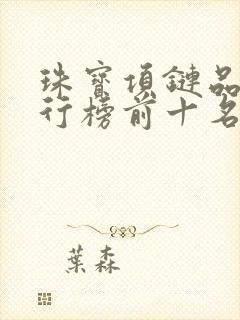 珠寶項鏈品
行榜前十名
葉森